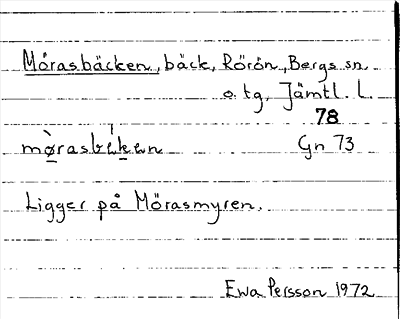 Mörasbäcken, bäck, Rörön, Bergs sn.
o. tg, Jämtl. l.
78
mò̱rasbé̱ḵen Gn 73
Ligger på Mörasmyren.
Ewa Persson 1972